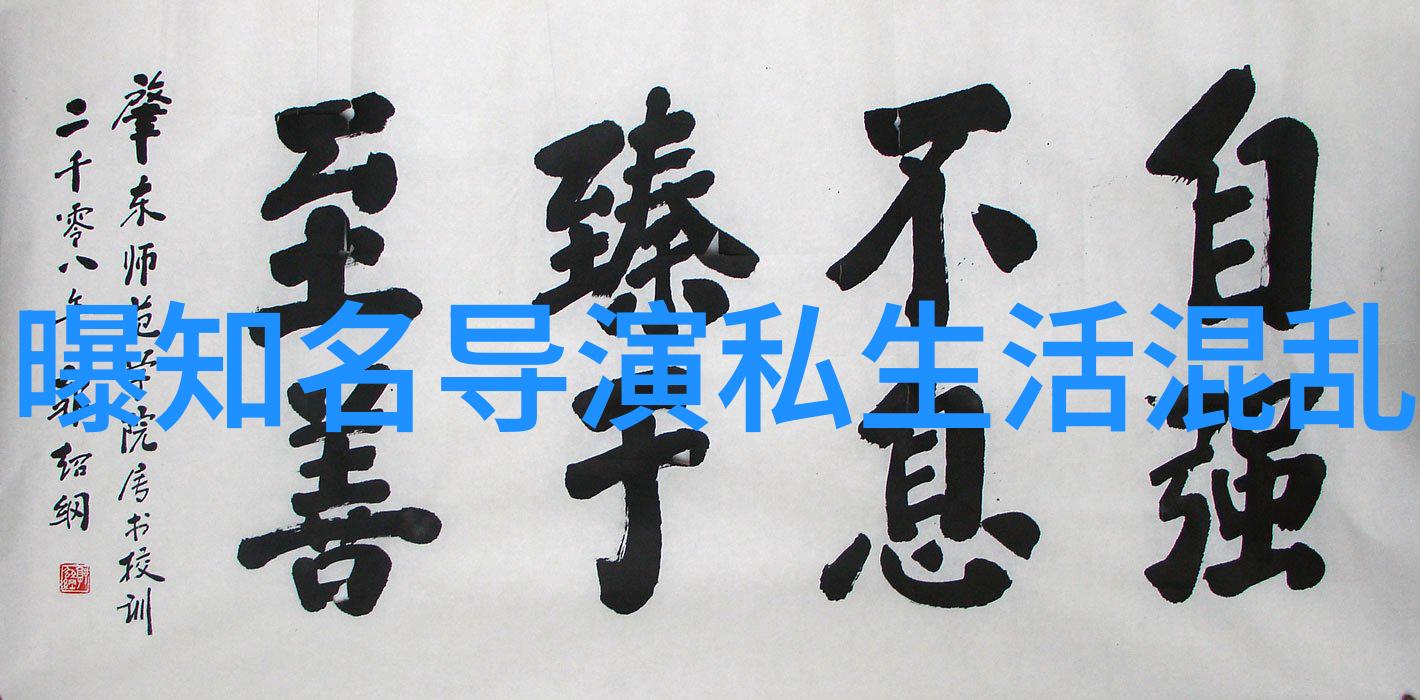 自强
不息
臻于
至善
肇东师范学院属书校训
二千零八年 绍纲
曝知名导演私生活混乱